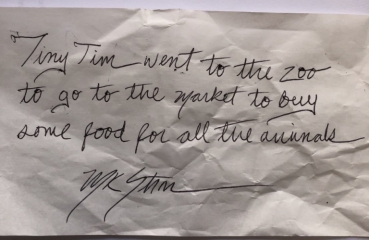 Tiny Tim went to the zoo
to go to the market to buy
some food for all the animals